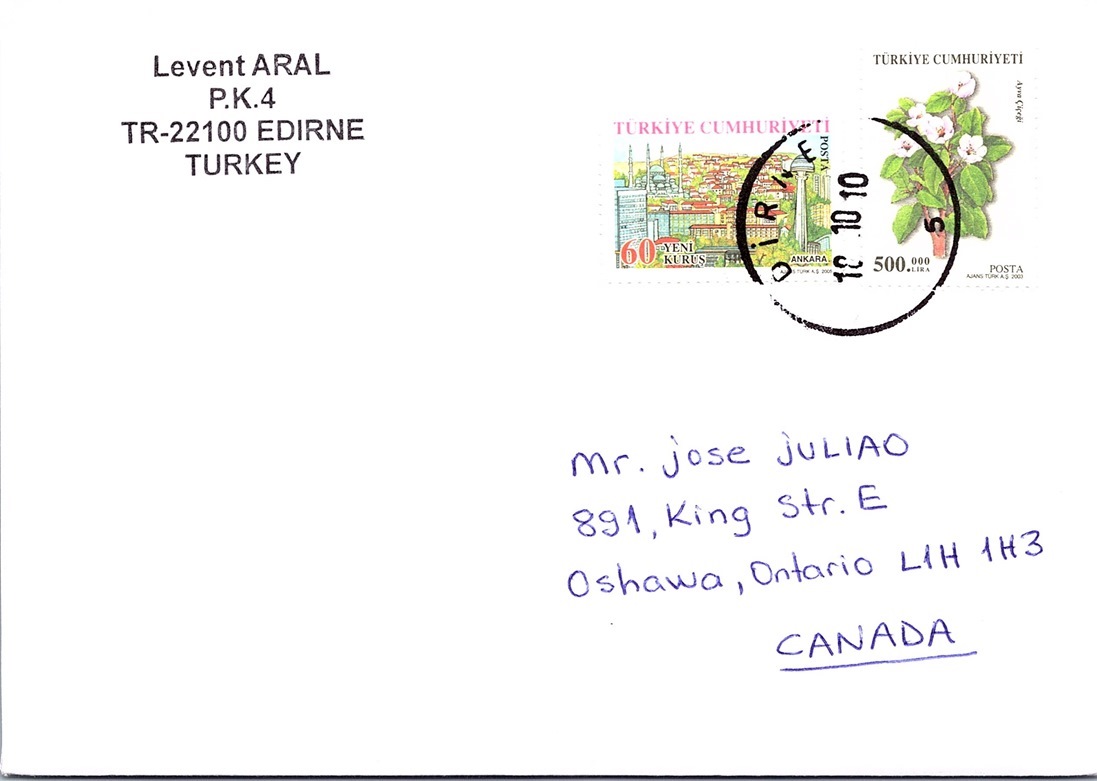 Levent ARAL
P.K.4
TR-22100 EDIRNE
TURKEY
TÜRKİYE CUMHURİYETİ
POSTA
60 YENİ
KURUŞ
ANKARA
AJANS TÜRK A.Ş. 2005
TÜRKİYE CUMHURİYETİ
Ayva Çiçeği
500.000
LİRA
POSTA
AJANS TÜRK A.Ş. 2003
DİRNE
10.10 10
5
Mr. jose jULIAO
891, King Str. E
Oshawa, Ontario L1H 1H3
CANADA